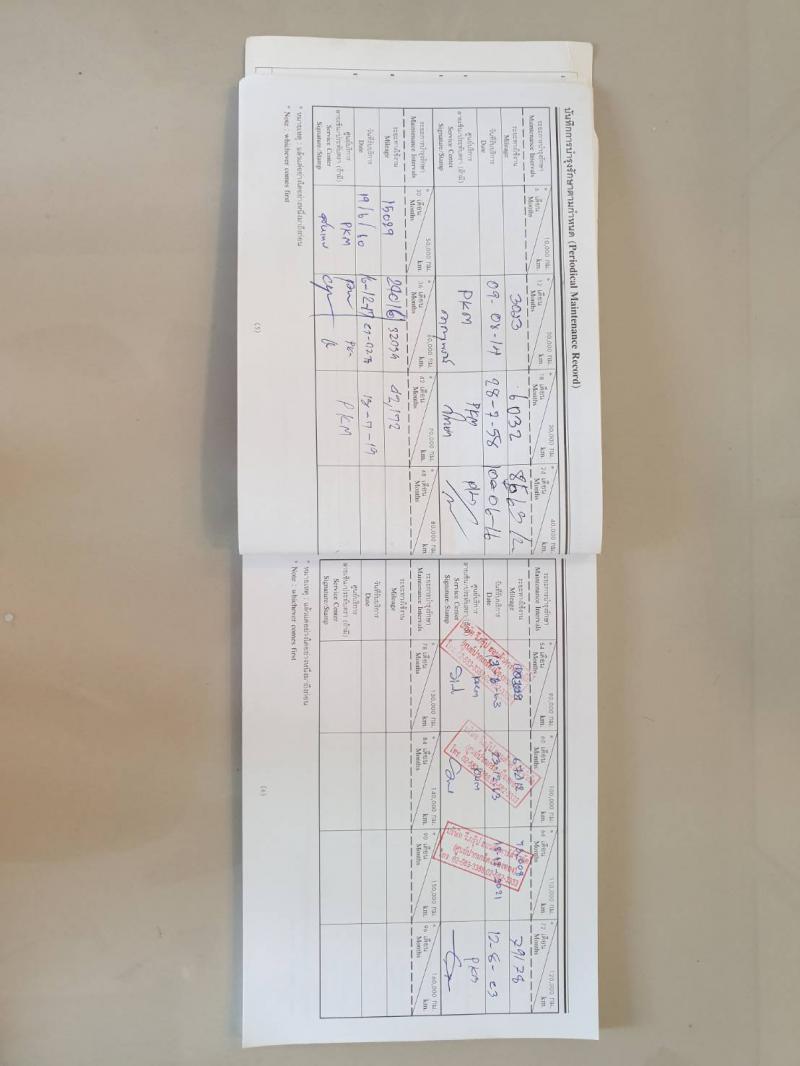 บันทึกการบำรุงรักษาตามกำหนด (Periodical Maintenance Record)
ระยะการบำรุงรักษา
Maintenance Intervals
* 6 เดือน Months 10,000 กม. km.
* 12 เดือน Months 20,000 กม. km.
* 18 เดือน Months 30,000 กม. km.
* 24 เดือน Months 40,000 กม. km.
ระยะทางใช้งาน
Mileage
3053
6032
วันที่รับบริการ
Date
09-08-14
28-7-58
ศูนย์บริการ
Service Center
PKM
PKM
ลายเซ็น/ประทับตรา (ถ้ามี)
Signature/Stamp
ระยะการบำรุงรักษา
Maintenance Intervals
* 30 เดือน Months 50,000 กม. km.
* 36 เดือน Months 60,000 กม. km.
* 42 เดือน Months 70,000 กม. km.
* 48 เดือน Months 80,000 กม. km.
ระยะทางใช้งาน
Mileage
15089
32034
42,172
วันที่รับบริการ
Date
19/6/60
13-7-19
ศูนย์บริการ
Service Center
PKM
PKM
ลายเซ็น/ประทับตรา (ถ้ามี)
Signature/Stamp
* หมายเหตุ : แล้วแต่อย่างใดอย่างหนึ่งมาถึงก่อน
* Note : whichever comes first
(5)
ระยะการบำรุงรักษา
Maintenance Intervals
* 54 เดือน Months 90,000 กม. km.
* 60 เดือน Months 100,000 กม. km.
* 66 เดือน Months 110,000 กม. km.
* 72 เดือน Months 120,000 กม. km.
ระยะทางใช้งาน
Mileage
67212
79178
วันที่รับบริการ
Date
23-12-63
2021
12-6-23
ศูนย์บริการ
Service Center
PKM
PKM
PKM
ลายเซ็น/ประทับตรา (ถ้ามี)
Signature/Stamp
ระยะการบำรุงรักษา
Maintenance Intervals
* 78 เดือน Months 130,000 กม. km.
* 84 เดือน Months 140,000 กม. km.
* 90 เดือน Months 150,000 กม. km.
* 96 เดือน Months 160,000 กม. km.
ระยะทางใช้งาน
Mileage
วันที่รับบริการ
Date
ศูนย์บริการ
Service Center
ลายเซ็น/ประทับตรา (ถ้ามี)
Signature/Stamp
* หมายเหตุ : แล้วแต่อย่างใดอย่างหนึ่งมาถึงก่อน
* Note : whichever comes first
(6)